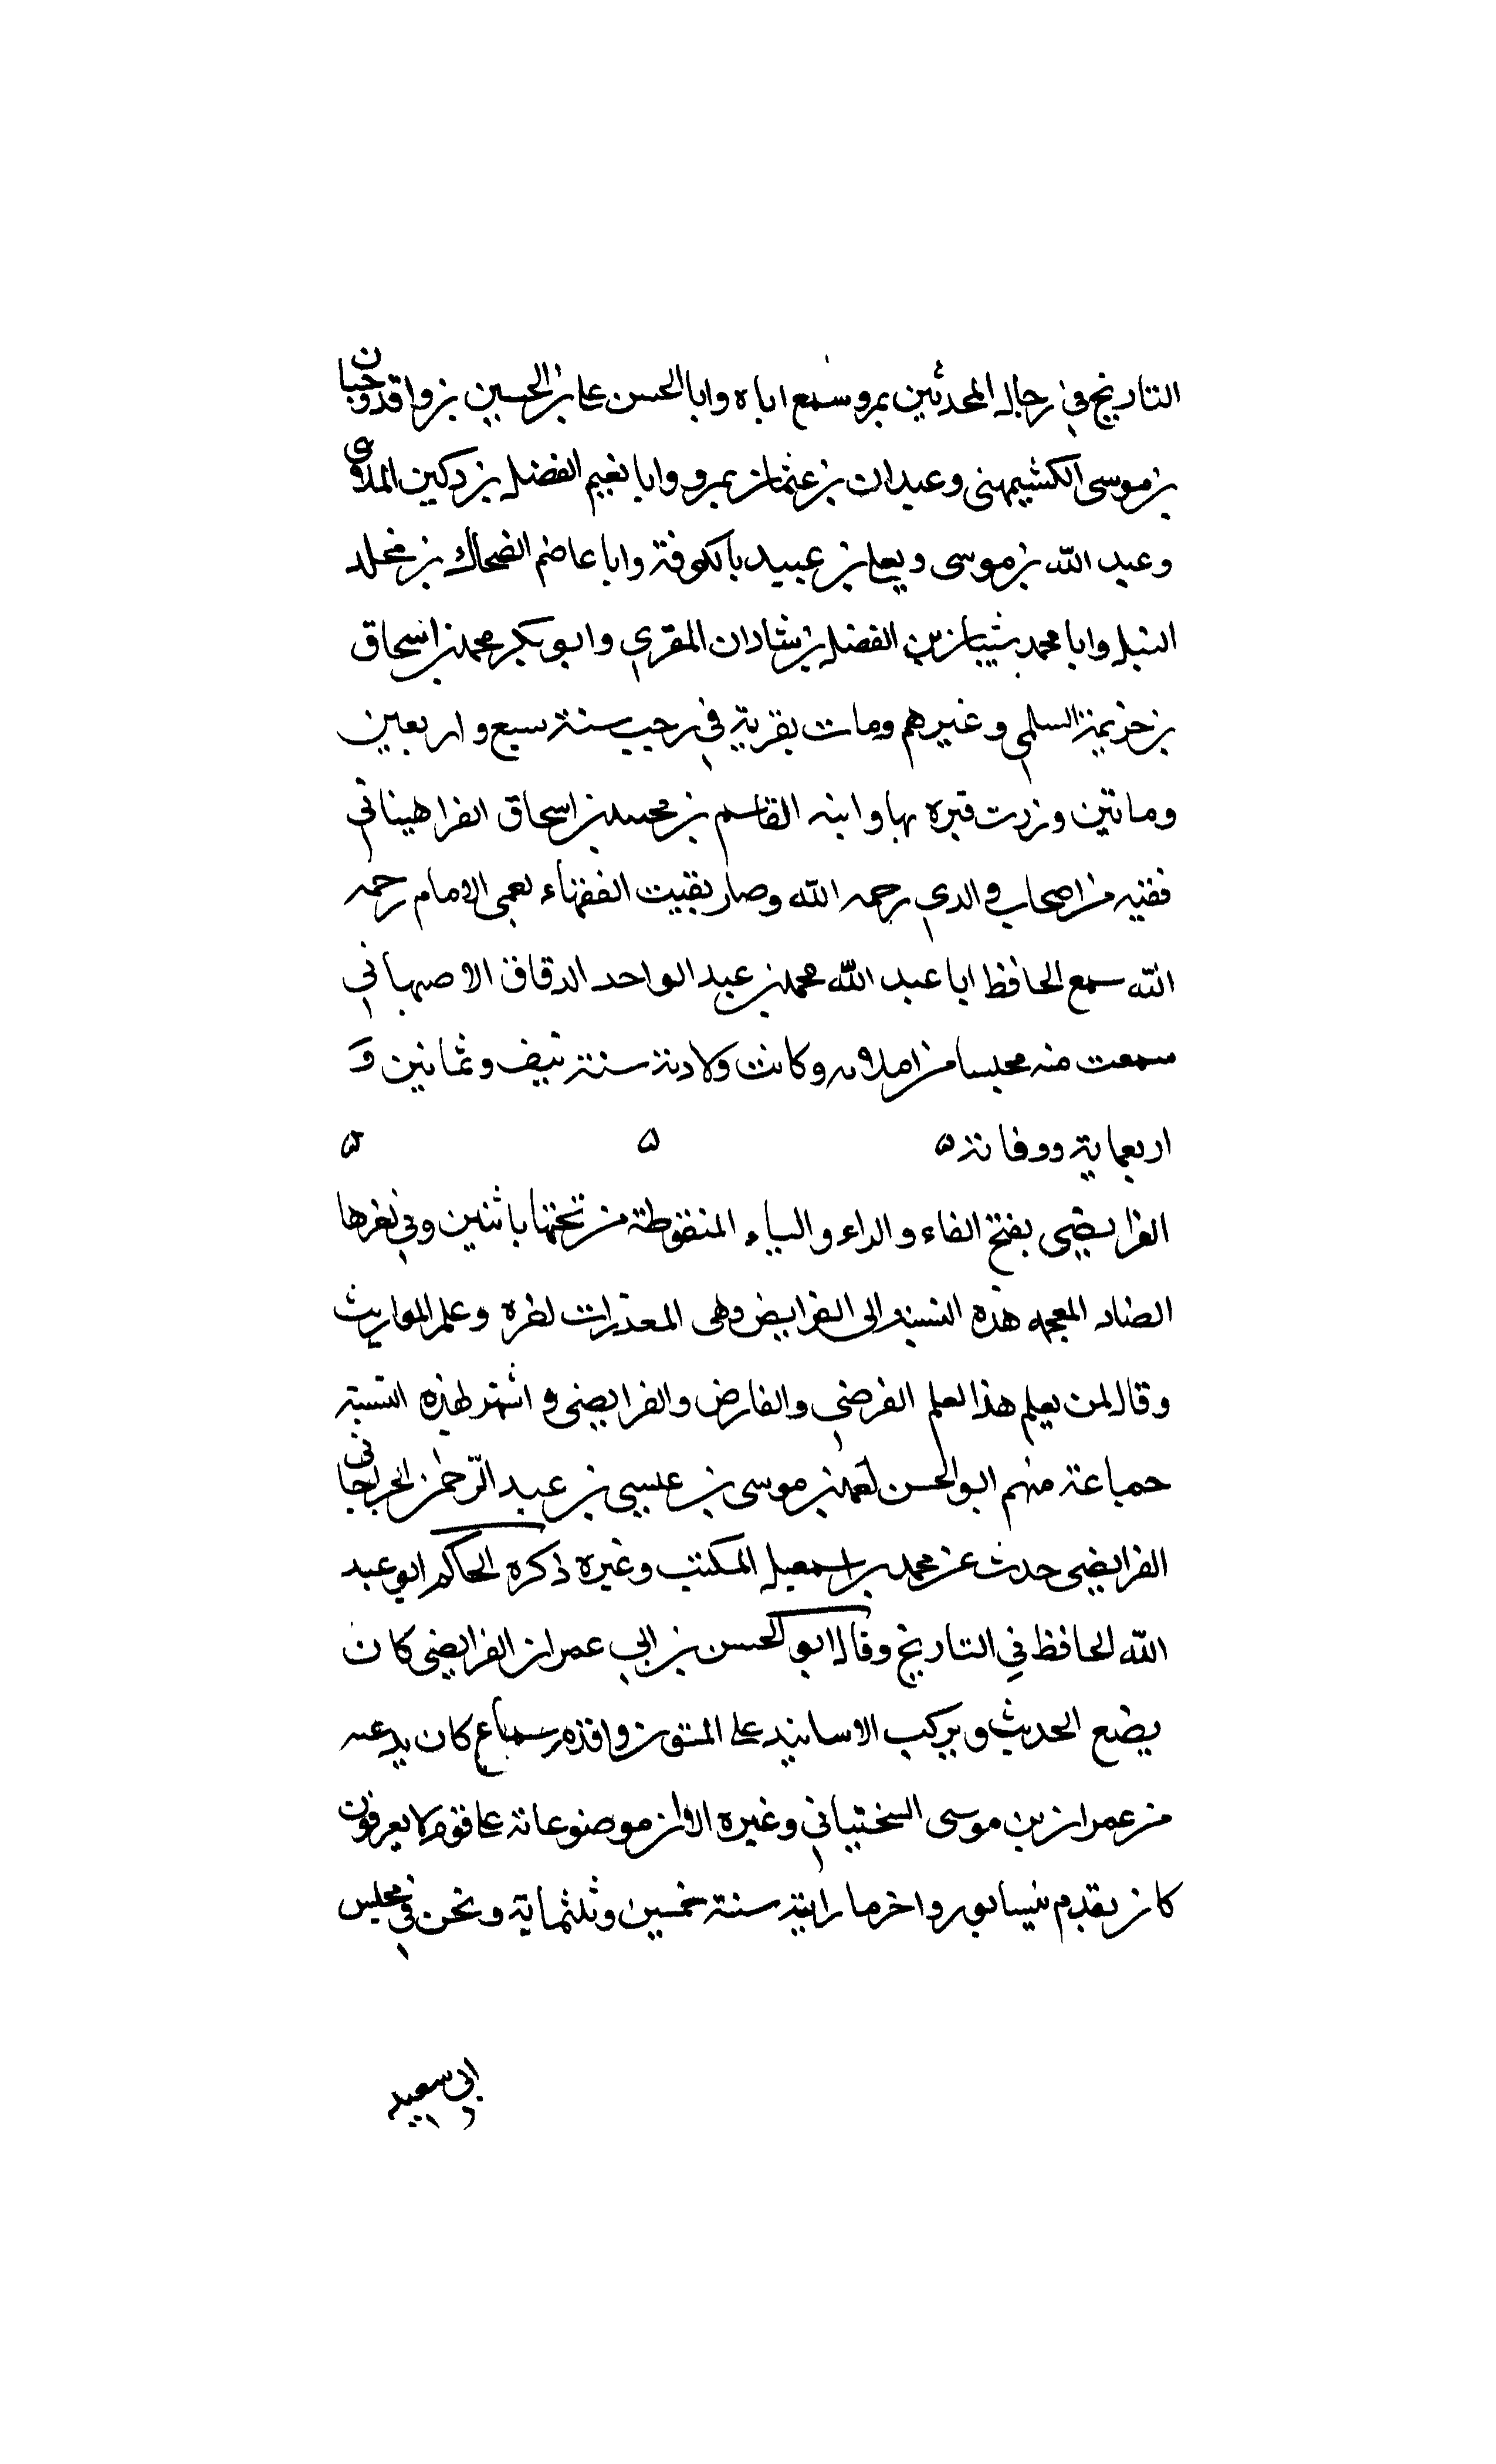 التاريخ في رجال المحدثين بمرو سمع اباه وابا الحسن على بن الحسين بن واقد وحبان
بن موسى الكشميهنى وعبدان بن عثمان بمرو وابا نعيم الفضل بن دكين الملاى
وعبد الله بن موسى ويعلى بن عبيد بالكوفة وابا عاصم الضحاك بن مخلد
النبيل وابا محمد شيبان بن الفضل بن شادان المقري وابو بكر محمد بن اسحاق
بن خزيمة السلمي وغيرهم ومات بقرية في رجب سنة سبع واربعين
وماتين وزرت قبره بها وابنه القاسم بن محمد بن اسحاق الفراهيناني
فقيه من اصحاب والدي رحمه الله وصار بقيت الفقهاء لعمى الامام رحمه
الله سمع الحافظ ابا عبد الله محمد بن عبد الواحد الدقاق الاصبهاني
سمعت منه مجلسا من املائه وكانت ولادته سنة نيف وثمانين و
اربعماية ووفاته ٥ ٥ ٥
الفرايضى بفتح الفاء والراء والياء المنقوطة من تحتها باثنين وفي اخرها
الضاد المعجمه هذه النسبة الى الفرايض وهى المقدرات وعلم المواريث
وقال لمن يعلم هذا العلم الفرضي والفارض والفرايضى و اشتهر لهذه النسبة
جماعة منهم ابو الحسن بن موسى بن عيسى بن عبد الرحمن الجرجانى
الفرايضى حدث عن محمد بن اسمعيل المكتب وغيره ذكره الحاكم ابو عبد
الله الحافظ في التاريخ وقال ابو الحسن بن ابي عمران الفرايضى كان
يضع الحديث ويركب الاسانيد على المتون وافة سماع كان يدعيه
من عمران بن موسى السختياني وغيره الا ان موضوعاته على قوم لا يعرفون
كان يقدم نيسابور واخر ما رايته سنة خمسين وثلثماية ونحن في مجلس
ابي سعيد